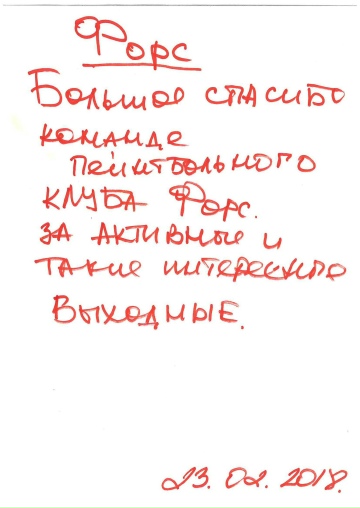 Форс
Большое спасибо
команде
пейнтбольного
клуба Форс.
за активные и
такие интересные
выходные.
23.02.2018.